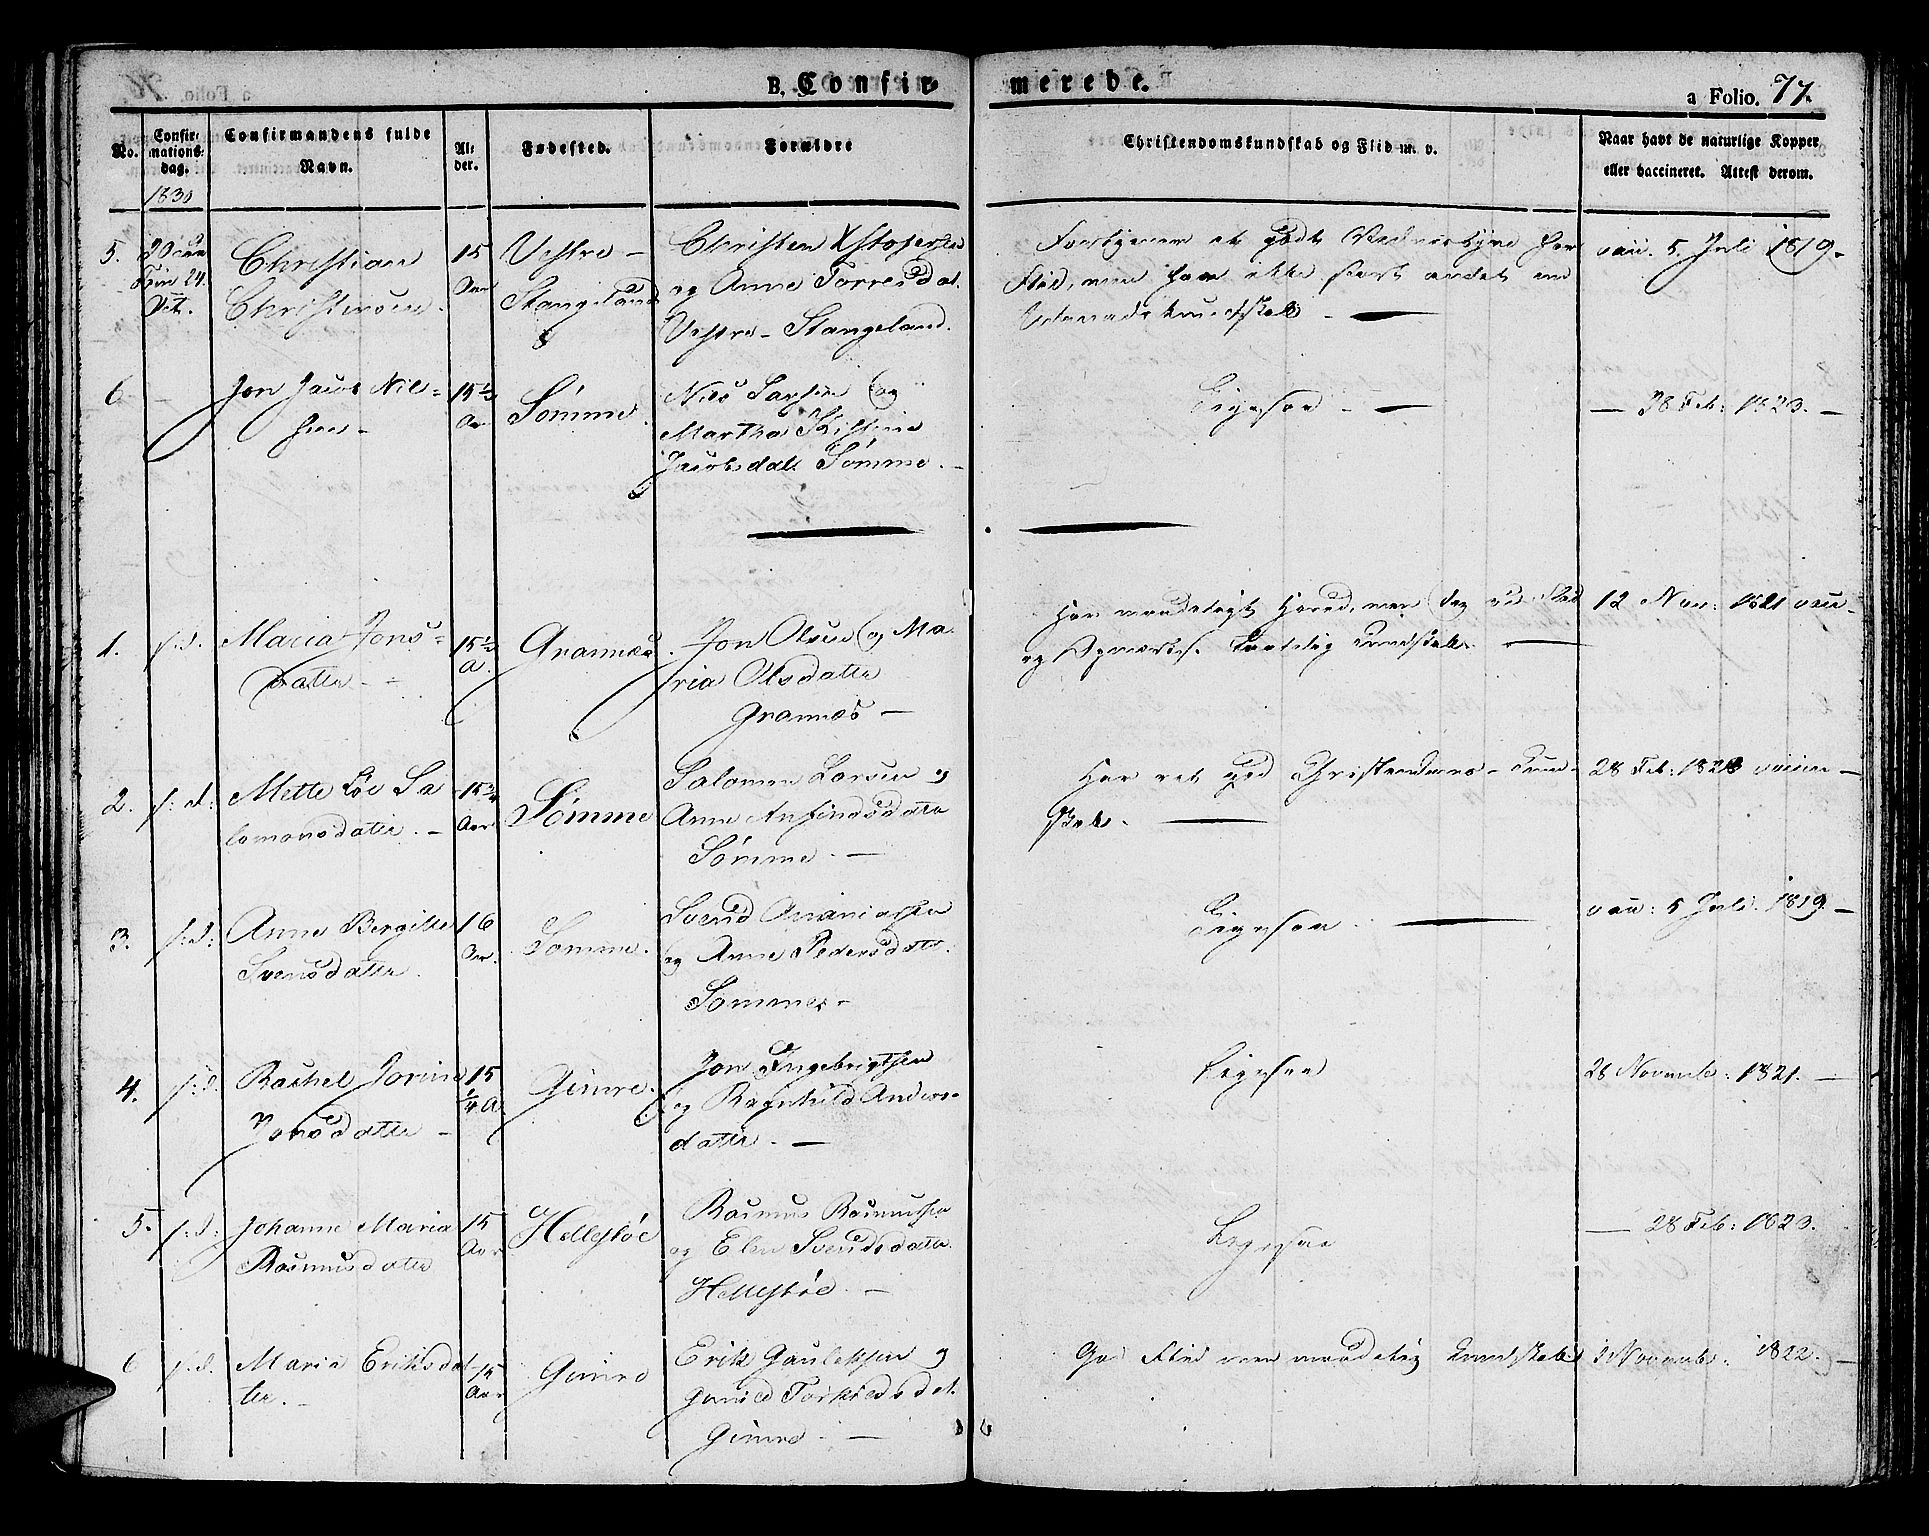 B, Confirmerede.
a Folio. 77.
No.
Confirmations dag.
1830
Confirmandens fulde Navn.
Alder.
Fødested.
Forældre
Christendomskundskab og Flid m. v.
Naar havt de naturlige Kopper eller vaccineret. Attest derom.
5.
Trin 24
Oct.
Christian
Christensen.
15
Aar
Vestre -
Stangeland
Christen Xstofersen
og Anne Torresdat.
Vestre - Stangeland.
Flid, men har ikke stort andet en
Udenadskundskab -
vacc. 5. Juli 1819 -
6
-
Jon Jacob Niel-
sen -
15½
Aar
Sömme.
Niels Larsen og
Martha Kistine
Jacobsdatt Sömme. -
Ligesaa -
- 28 Feb: 1823. -
1.
s:d:
Maria Jons-
datter -
15½
A.
Grannes.
Jon Olsen og Ma-
ria Olsdatter
Grannes -
Har maadeligt Hored, men
og Kundskab. -
12 Nov: 1821 vacc -
2.
s: d:
Mette Sa
lomonsdatter. -
15¾
Aar
Sömme
Salomon Larsen og
Anne Anfindsdatter
Sömme. -
Har ret god Christendoms - Kund-
skab. -
28 Feb: 1823 vaccin -
3.
s:d:
Anne Bergitte
Svensdatter.
16
Aar.
Sömme.
Svend Ananiasen
og Anne Pedersdatter.
Sömme -
Ligesaa. -
vacc: 5 Juli. 1819. -
4.
s:d:
Rachel Jorine
Jonsdatter -
15
¼ A
Gimre.
Jon Ingebrigtsen
og Ragnhild Anders-
datter. -
Ligesaa
28 Novemb: 1821. -
5.
s:d:
Johanne Maria
Rasmusdatter
15
Aar
Hellestöe
Rasmus Rasmussen
og Elen Svendsdatter
Hellestöe. -
Ligesaa
- 28 Feb: 1823.
6
s:d.
Maria Eriksdat-
ter. -
15
Aar
Gimre
Erik Gauteksen og
Gunild Torkildsdat.
Gimre. -
God Flid men maadelig Kundskab
Novemb: 1822. -